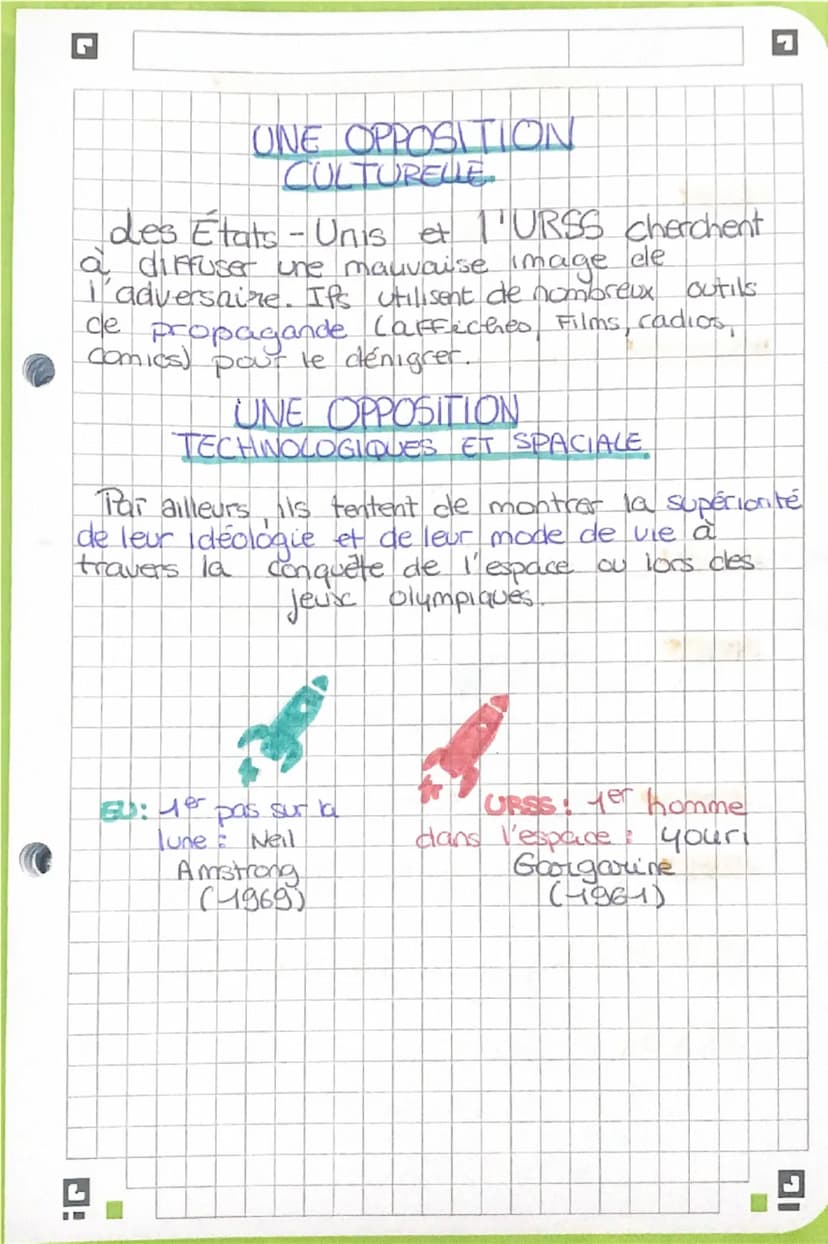 UNE OPPOSITION
CULTURELLE
des États-Unis et l'URSS cherchent
à diffuser une mauvaise image de
l'adversaire. Ils utilisent de nombreux outils
de propagande (affiches, films, radios,
comics) pour le dénigrer.
UNE OPPOSITION
TECHNOLOGIQUES ET SPACIALE
Par ailleurs, ils tentent de montrer la supériorité
de leur idéologie et de leur mode de vie à
travers la conquête de l'espace ou lors des
jeux olympiques.
EU: 1er pas sur la
lune : Neil
Amstrong
(1969)
URSS : 1er homme
dans l'espace : youri
Gargarine
(1961)